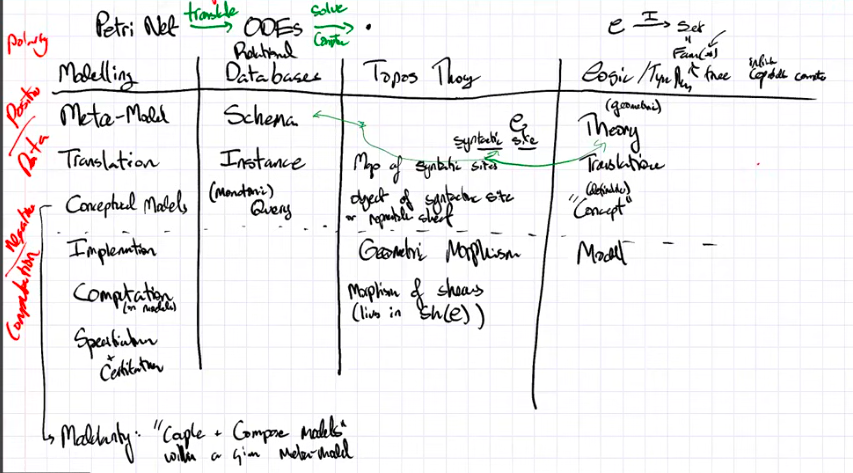 Petri Net translate ODEs solve
e I Set
Polarity
Relational
Fam(*)
Modelling Databases Topos Thoy Logic / Type free
Positive / Data
(geometric)
Meta-Model Schema e Theory
syntactic site
Translation Instance Map of syntactic sites Translation
(monotonic) (definable)
Conceptual Models Query object of syntactic site "Concept"
or sheaf
Negative / Computation
Implementation Geometric Morphism Model
Computation Morphism of sheaves
(on models) (lives in Sh(e))
Specification
+ Certification
Modularity: "Couple + Compose Models"
within a given Meta-Model